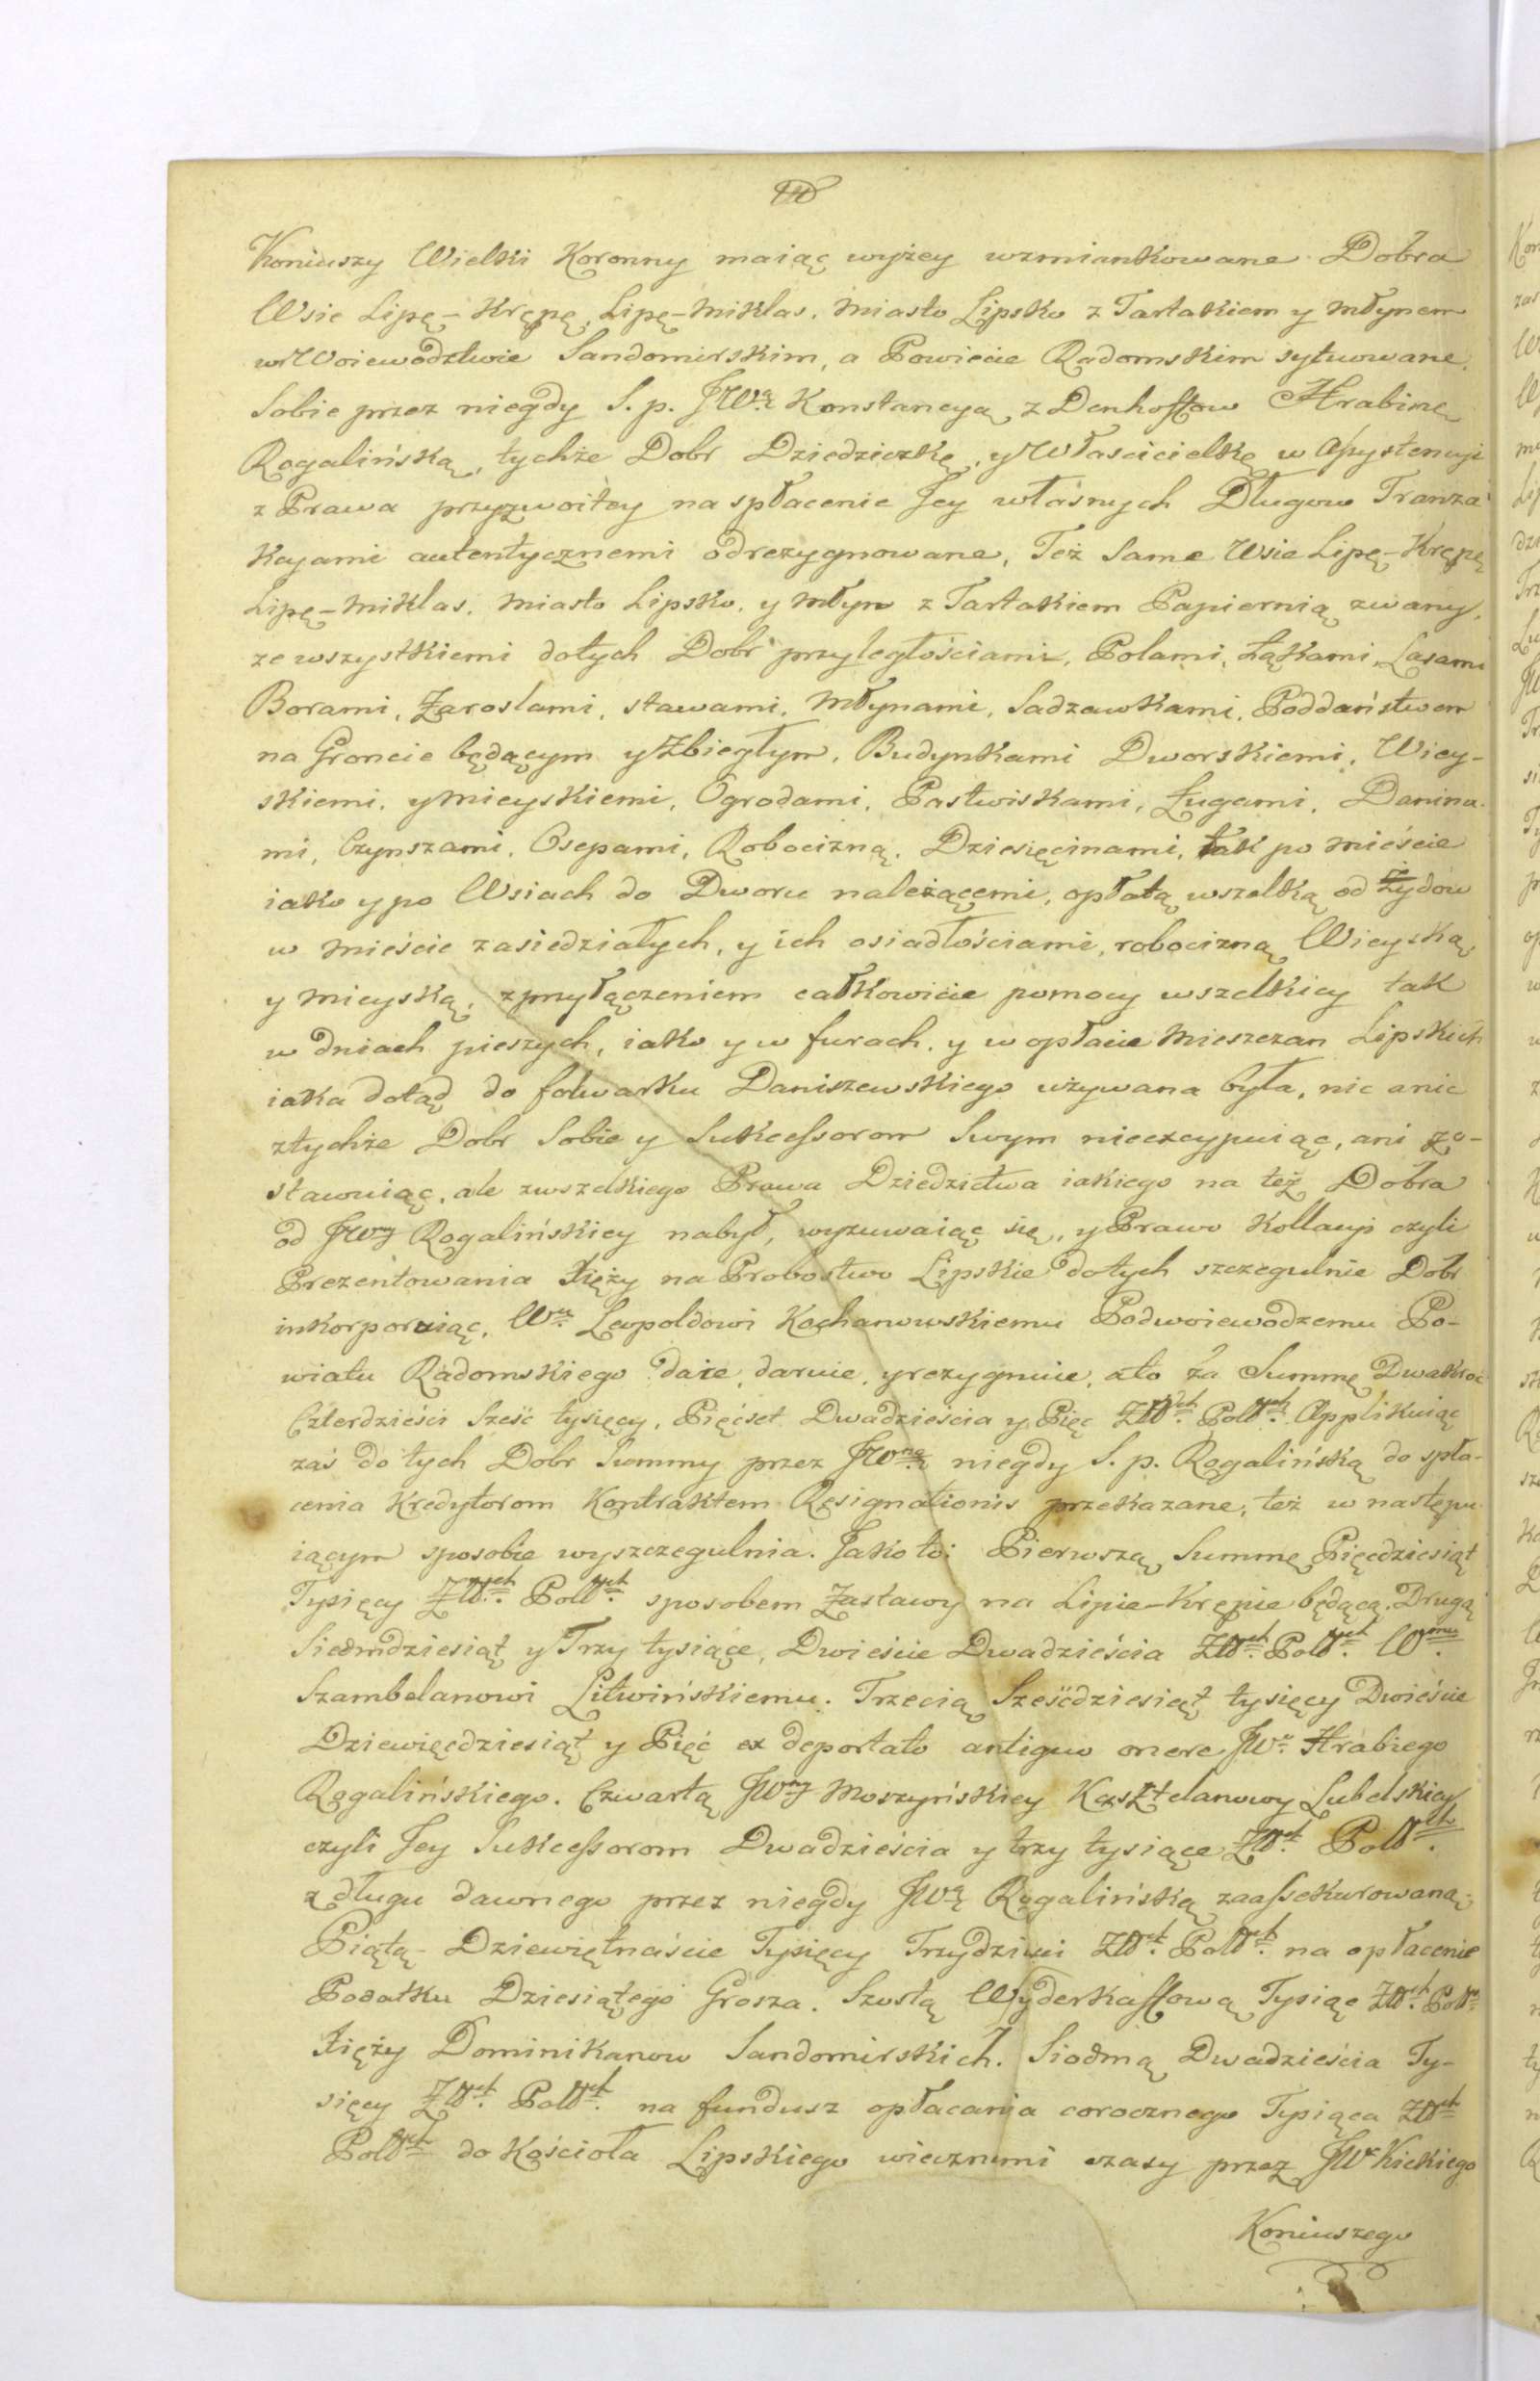 Koniuszy Wielki Koronny maiąc wyżey wzmiankowane Dobra
Wsie Lipę-Krępę, Lipę-Miklas, Miasto Lipsko z Tartakiem y Młynem
w Woiewodztwie Sandomirskim, a Powiecie Radomskim sytuowane,
Sobie przez niegdy S. p. JWą Konstancyą z Denhoffow Hrabinę
Rogalińską, tychże Dobr Dziedziczkę, y Włascicielkę w Assystencyi
z Prawa przyzwoitey na spłacenie Jey własnych Długow Tranza
kcyami autentycznemi odrezygnowane, Też same Wsie Lipę-Krępę
Lipę-Miklas, Miasto Lipsko, y Młyn z Tartakiem Papiernią zwany,
ze wszystkiemi dotych Dobr przyległościami, Polami, Łąkami, Lasami
Borami, Zaroslami, stawami, Młynami, Sadzawkami, Poddaństwem
na Groncie będącym y Zbiegłym, Budynkami Dworskiemi, Wiey-
skiemi, y Mieyskiemi, Ogrodami, Pastwiskami, Ługami, Danina-
mi, Czynszami, Osepami, Robocizną, Dziesięcinami, tak po Mieście
iako y po Wsiach do Dworu należącemi, opłatą wszelką od Żydow
w Mieście zasiedziałych, y ich osiadłościami, robocizną Wieyską,
y Mieyską, z przyłączeniem całkowicie pomocy wszelkiey tak
w dniach pieszych, iako y w furach, y w opłacie Mieszczan Lipskich
iaka dotąd do folwarku Daniszewskiego używana była, nic a nic
z tychże Dobr Sobie y Sukcessorom Swym nieexcypuiąc, ani zo-
stawuiąc, ale z wszelkiego Prawa Dziedzictwa iakiego na też Dobra
od JWny Rogalińskiey nabył, wyzuwaiąc się, y Prawo Kollacyi czyli
Prezentowania Xięży na Probostwo Lipskie dotych szczegulnie Dobr
inkorporuiąc, Wu Leopoldowi Kochanowskiemu Podwoiewodzemu Po-
wiatu Radomskiego daie, daruie, y rezygnuie, a to za Summę Dwakroć
Czterdzieści Sześć tysięcy, Pięćset Dwadzieścia y Pięć Złłch Pollch Applikuiąc
zaś do tych Dobr Summy przez JWną niegdy S. p. Rogalińską do spła-
cenia Kredytorom Kontraktem Resignationis przekazane, też w następu
iącym sposobie wyszczegulnia. Jako to: Pierwszą Summę Pięćdziesiąt
Tysięcy Złłch Pollch sposobem Zastawy na Lipie-Krępie będącą. Drugą
Siedmdziesiąt y Trzy tysiące, Dwieście Dwadzieścia Złłch Pollch Wmu
Szambelanowi Litwińskiemu. Trzecią Sześćdziesiąt tysięcy Dwieście
Dziewięćdziesiąt y Pięć ex deportato antiquo onere JWo Hrabiego
Rogalińskiego. Czwartą JWny Moszyńskiey Kasztelanowy Lubelskiey
czyli Jey Sukcessorom Dwadzieścia y trzy tysiące Złłch Pollch
z długu dawnego przez niegdy JWą Rogalińską zaassekurowaną.
Piątą Dziewiętnaście Tysięcy Trzydzieści Złłch Pollch na opłacenie
Podatku Dziesiątego Grosza. Szostą Wyderkaffową Tysiąc Złłch Pollch
Xięży Dominikanow Sandomirskich. Siodmą Dwadzieścia Ty-
sięcy Złłch Pollch na fundusz opłacania corocznego Tysiąca Złłch
Pollch do Kościoła Lipskiego wiecznemi czasy przez JW Kickiego
Koniuszego